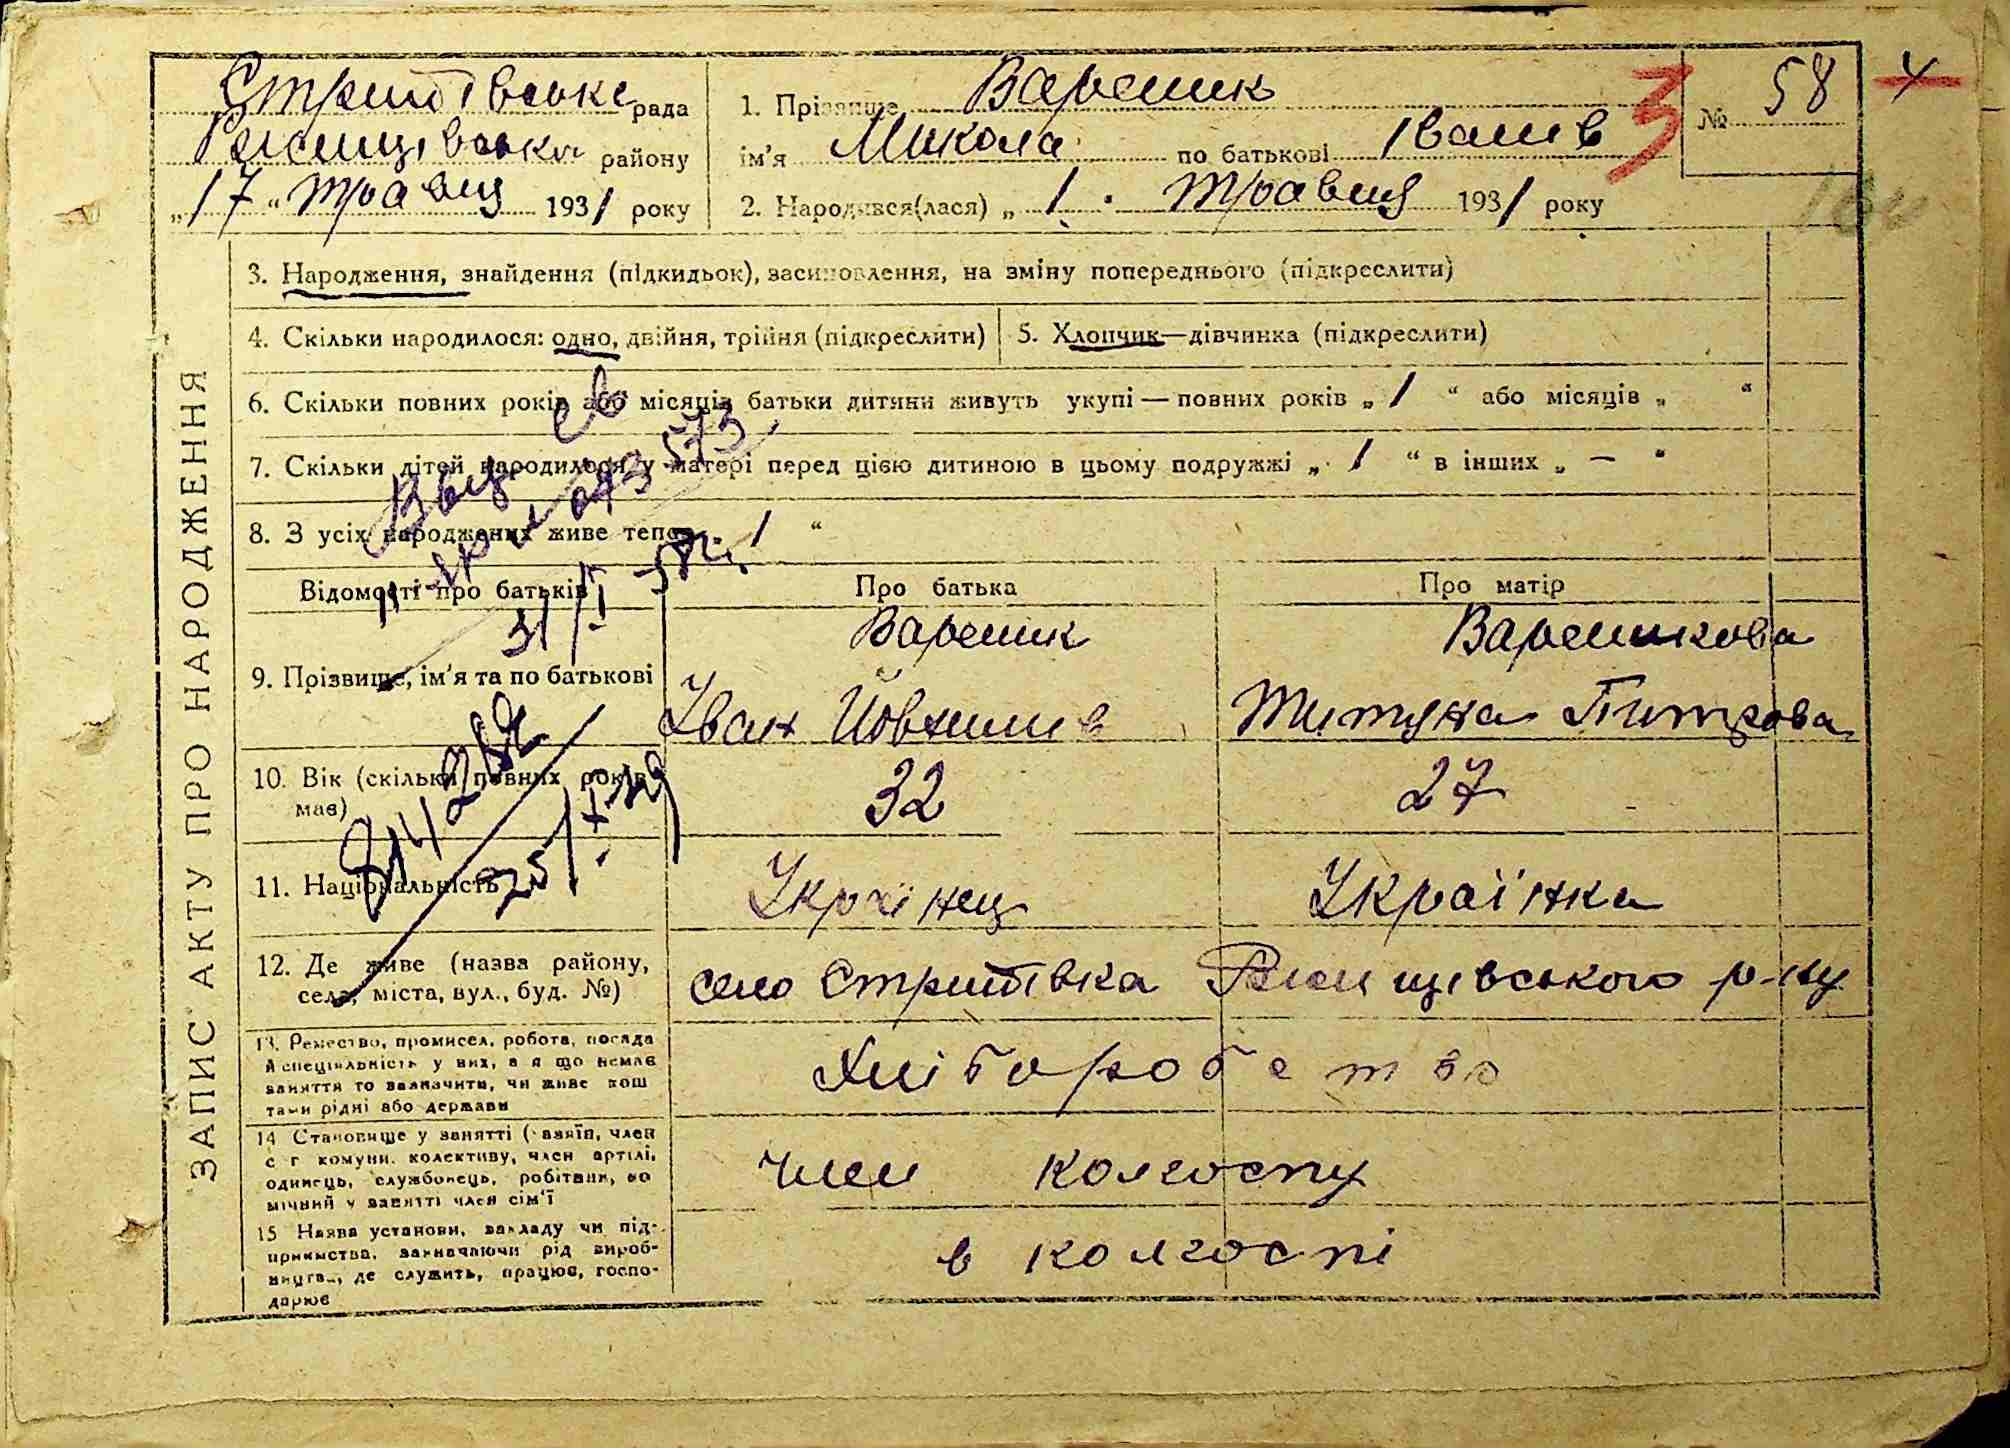 Стритівська рада
Ржищівська району
„17“ травня 1931 року
1. Прізвище Вареник
ім'я Микола по батькові Іванів
2. Народився(лася) „1“ травня 1931 року
№ 58
3
4
3. Народження, знайдення (підкидьок), засиновлення, на зміну попереднього (підкреслити)
4. Скільки народилося: одно, двійня, трійня (підкреслити)
5. Хлопчик—дівчинка (підкреслити)
6. Скільки повних років або місяців батьки дитини живуть укупі — повних років „ 1 “ або місяців „ “
7. Скільки дітей народилося у матері перед цією дитиною в цьому подружжі „ 1 “ в інших „ — “
8. З усіх народжених живе тепер „ 1 “
Відомості про батьків
Про батька
Про матір
9. Прізвище, ім'я та по батькові
Вареник
Іван Йовхимів
Вареникова
Титяна Питрова
10. Вік (скільки повних років має)
32
27
11. Національність
Українец
Українка
12. Де живе (назва району,
села, міста, вул., буд. №)
село Стритівка Ржищівського р-ну
13. Ремество, промисел, робота, посада
й спеціяльність у них, а я що немає
заняття то зазначити, чи живе кош
тами рідні або держави
Хліборобство
14 Становище у занятті (хазяїн, член
с г комуни. колективу, член артілі,
одинець, службовець, робітник, по
мічний у занятті член сім'ї
член колгоспу
15 Назва установи, закладу чи під-
приємства, зазначаючи рід вироб-
ництва, де служить, працює, госпо-
дарює
в колгоспі
ЗАПИС АКТУ ПРО НАРОДЖЕННЯ